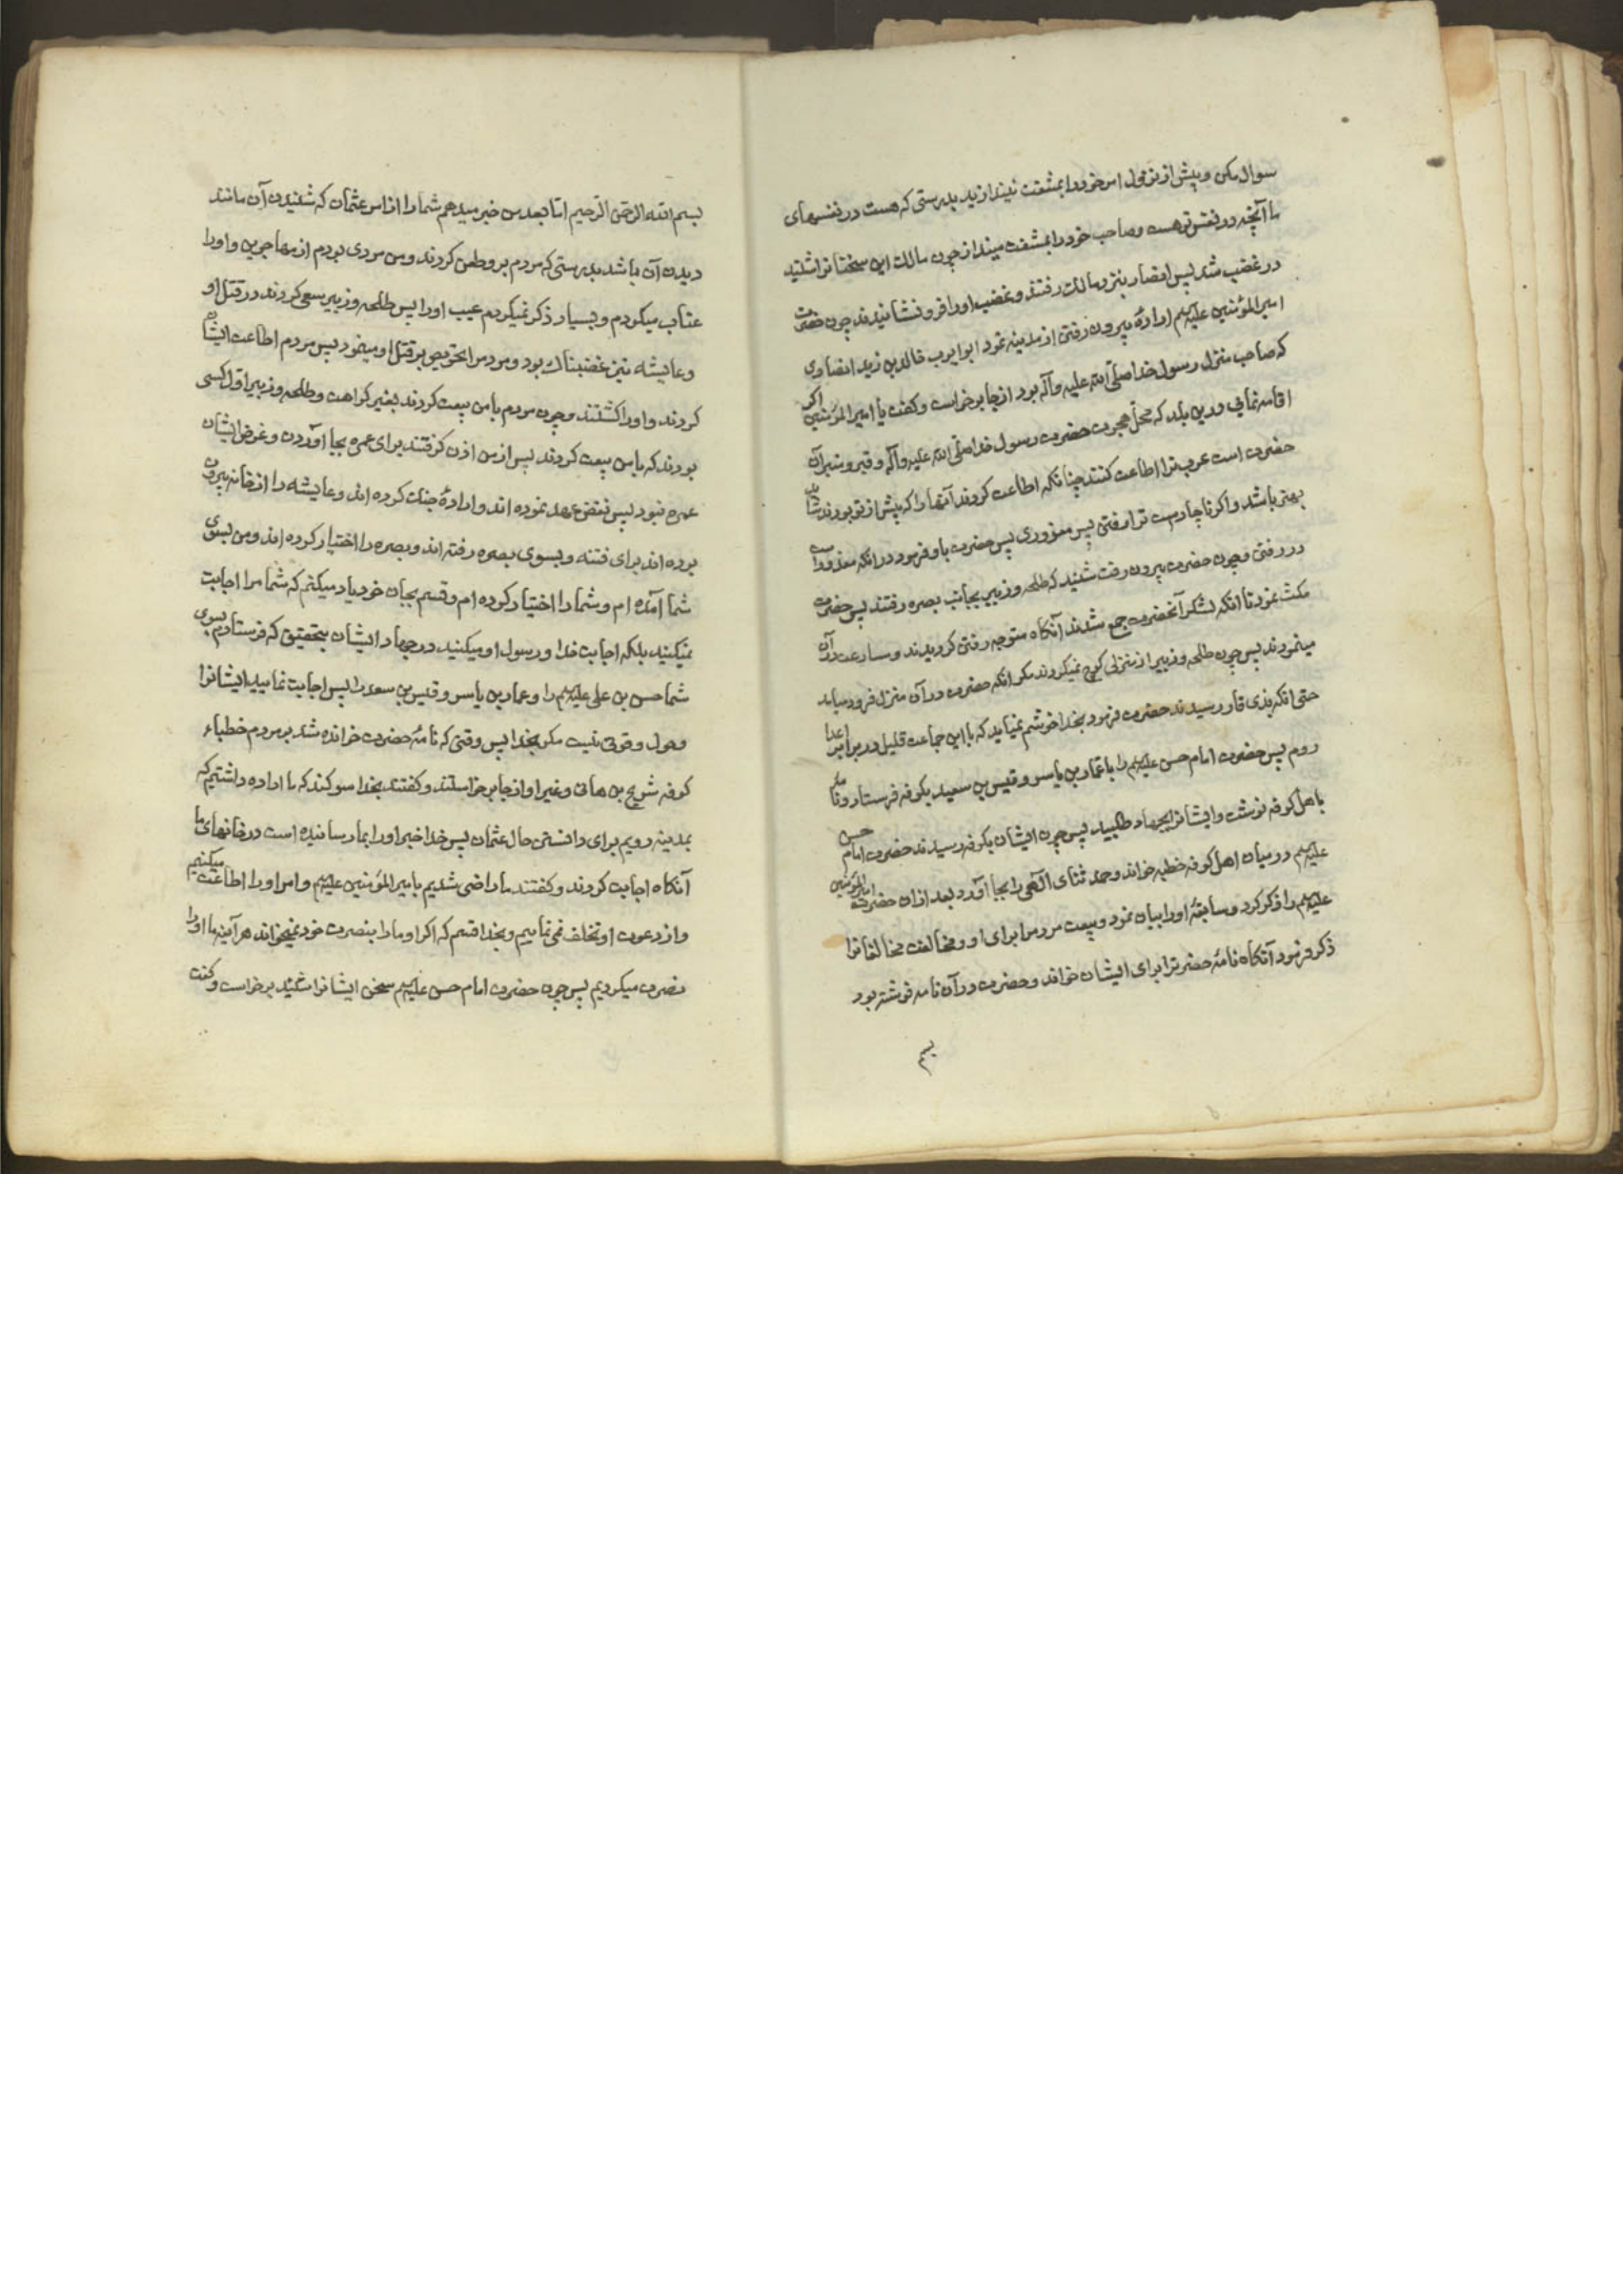 سوال مکن و پیش از نزول امر خود را بمشقت نیندازید بدرستی که هست در نفسهای
ما آنچه در نفس تو هست و صاحب خود را بمشقت مینداز چون مالک این سخنانرا شنید
در غضب شد پس انصار بنزد مالک رفتند و غضب او را فرو نشانیدند چون حضرت
امیرالمؤمنین علیه‌السلم ارادهٔ بیرون رفتن از مدینه نمود ابو ایوب خالد بن زید انصاری
که صاحب منزل رسول خدا صلی الله علیه و آله بود از جا برخواست و کفت یا امیر المؤمنین اکر
اقامه نمایی در این بلد که محل هجرت حضرت رسول خدا صلی الله علیه و آله و قبر و منبر آن
حضرت است عرب ترا اطاعت کنند چنانکه اطاعت کردند آنها را که پیش از تو بودند شاید
بهتر باشد و اکر ناچارست ترا رفتن پس معذوری پس حضرت باو فرمود در انکه معذور است
در رفتن و چون حضرت بیرون رفت شنید که طلحه و زبیر بجانب بصره رفتند پس حضرت
مکث نمود تا انکه لشکر آنحضرت جمع شدند آنکاه متوجه رفتن کردیدند و مسارعت در آن
مینمودند پس چون طلحه و زبیر از منزلی کوچ نمیکردند مکر انکه حضرت در آن منزل فرود میامد
حتی انکه بذی قار رسیدند حضرت فرمود بخدا خوشم نمیاید که با این جماعت قلیل در برابر اعدا
روم پس حضرت امام حسن علیه‌السلم را با عمار بن یاسر و قیس بن سعید بکوفه فرستاد و نامه
باهل کوفه نوشت و ایشانرا بجهاد طلبید پس چون ایشان بکوفه رسیدند حضرت امام حسن
علیه‌السلم در میان اهل کوفه خطبه خواند و حمد ثنای الهی را بجا آورد بعد از ان حضرت امیرالمؤمنین
علیه‌السلم را ذکر کرد و سابقهٔ او را بیان نمود و بیعت مردمرا برای او و مخالفت مخالفانرا
ذکر فرمود آنکاه نامهٔ حضرترا برای ایشان خواند و حضرت در آن نامه نوشته بود
بسم
بسم الله الرحمن الرحیم اما بعد من خبر میدهم شما را از امر عثمان که شنیدن آن مانند
دیدن آن باشد بدرستی که مردم بر او طعن کردند و من مردی بودم از مهاجرین و او را
عتاب میکردم و بسیار ذکر نمیکردم عیب او را پس طلحه و زبیر سعی کردند در قتل او
و عایشه نیز غضبناک بود و مردمرا تحریص بر قتل او مینمود پس مردم اطاعت ایشان
کردند و او را کشتند و چون مردم با من بیعت کردند بغیر کراهت و طلحه و زبیر اول کسی
بودند که با من بیعت کردند پس از من اذن کرفتند برای عمره بجا آوردن و غرض ایشان
عمره نبود پس نقض عهد نموده اند و ارادهٔ جنک کرده اند و عایشه را از خانه بیرون
برده اند برای فتنه و بسوی بصره رفته اند و بصره را اختیار کرده اند و من بسوی
شما آمده ام و شما را اختیار کرده ام و قسم بجان خود یاد میکنم که شما مرا اجابت
نمیکنید بلکه اجابت خدا و رسول او میکنید در جهاد ایشان بتحقیق که فرستادم بسوی
شما حسن بن علی علیه‌السلم را و عمار بن یاسر و قیس بن سعد را پس اجابت نمایید ایشانرا
و حول و قوتی نیست مکر بخدا پس وقتی که نامهٔ حضرت خوانده شد بر مردم خطباء
کوفه شریح بن هانی و غیر او از جا برخواستند و کفتند بخدا سوکند که ما اراده داشتیم که
بمدینه رویم برای دانستن حال عثمان پس خدا خبر او را بما رسانیده است در خانهای ما
آنکاه اجابت کردند و کفتند ما راضی شدیم بامیر المؤمنین علیه‌السلم و امر او را اطاعت میکنیم
و از دعوت او تخلف نمی نماییم و بخدا قسم که اکر او ما را بنصرت خود نمیخواند هر آینه ما او را
نصرت میکردیم پس چون حضرت امام حسن علیه‌السلم سخن ایشانرا شنید برخواست و کفت